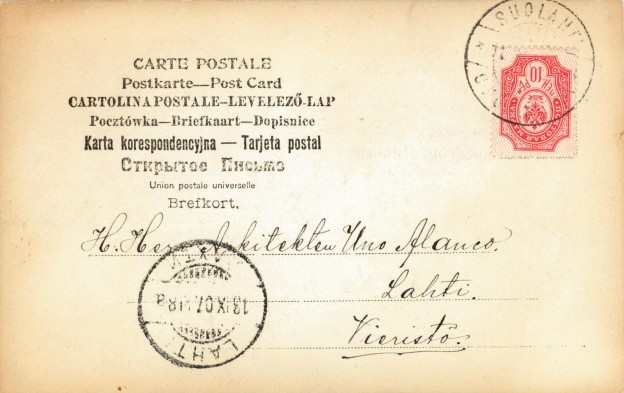 CARTE POSTALE
Postkarte—Post Card
CARTOLINA POSTALE-LEVELEZŐ-LAP
Pocztówka—Briefkaart—Dopisnice
Karta korespondencyjna — Tarjeta postal
Открытое Письмо
Union postale universelle
Brefkort.
SUOLAHTI
10
H. Herr Arkitekten Uno Alanco.
Lahti.
Vieristö.
LAHTI
13.IX.07